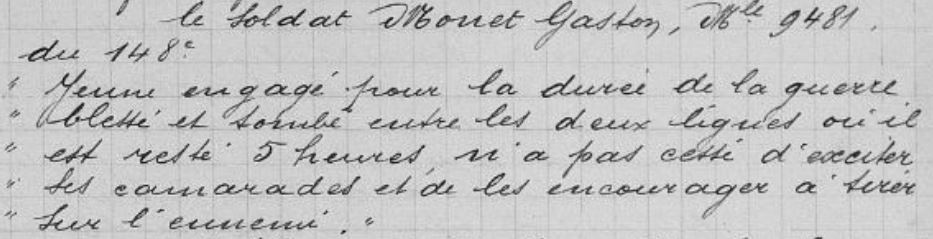 le soldat Monet Gaston, Mle 9481.
du 148e
" Jeune engagé pour la durée de la guerre
" blessé et tombé entre les deux lignes où il
" est resté 5 heures, n'a pas cessé d'exciter
" ses camarades et de les encourager à tirer
" sur l'ennemi. "